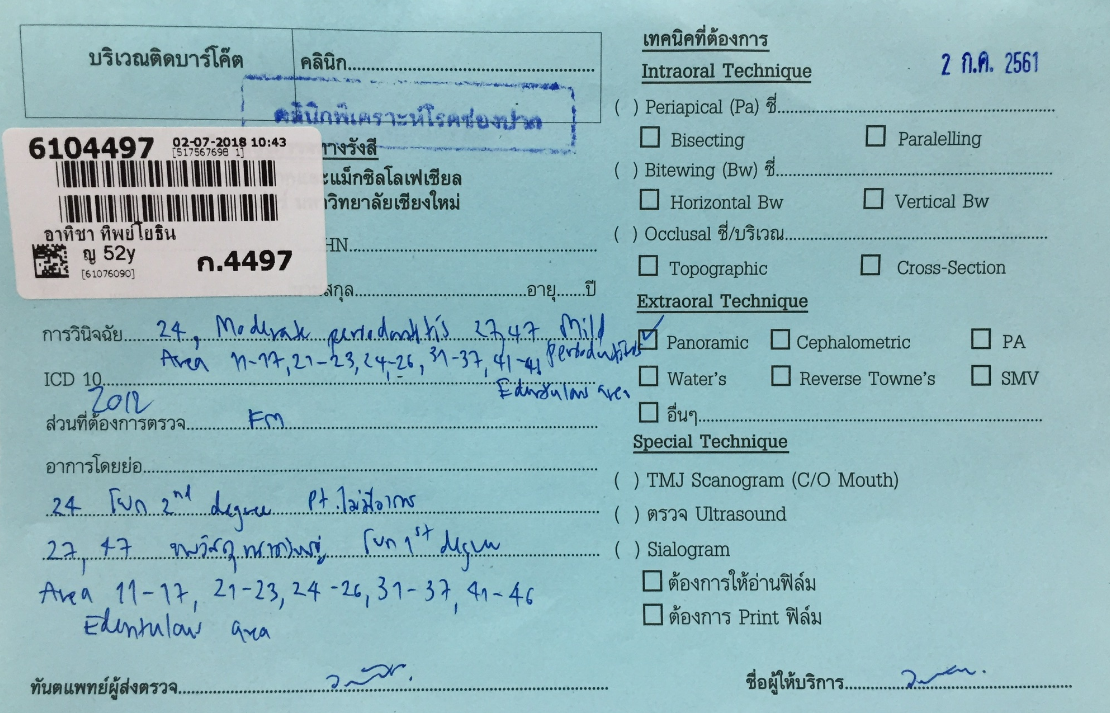 บริเวณติดบาร์โค๊ต
คลินิก
คลินิกพิเคราะห์โรคช่องปาก
6104497
02-07-2018 10:43
[517567698 1]
อาทิชา ทิพย์โยธิน
ญ 52y
[61076090]
ก.4497
ทางรังสี
และแม็กซิลโลเฟเชียล
มหาวิทยาลัยเชียงใหม่
HN.
สกุล อายุ ปี
การวินิจฉัย 24, Moderate periodontitis 27,47 Mild periodontitis
Area 11-17, 21-23, 24-26, 31-37, 41-
Edentulous area
ICD 10
2012
ส่วนที่ต้องการตรวจ FM
อาการโดยย่อ
24 โยก 2nd degree Pt. ไม่มีอาการ
27, 47 โยก 1st degree
Area 11-17, 21-23, 24-26, 31-37, 41-46
Edentulous area
ทันตแพทย์ผู้ส่งตรวจ
เทคนิคที่ต้องการ
2 ก.ค. 2561
Intraoral Technique
( ) Periapical (Pa) ซี่
Bisecting Paralelling
( ) Bitewing (Bw) ซี่
Horizontal Bw Vertical Bw
( ) Occlusal ซี่/บริเวณ
Topographic Cross-Section
Extraoral Technique
✓ Panoramic Cephalometric PA
Water's Reverse Towne's SMV
อื่นๆ
Special Technique
( ) TMJ Scanogram (C/O Mouth)
( ) ตรวจ Ultrasound
( ) Sialogram
ต้องการให้อ่านฟิล์ม
ต้องการ Print ฟิล์ม
ชื่อผู้ให้บริการ